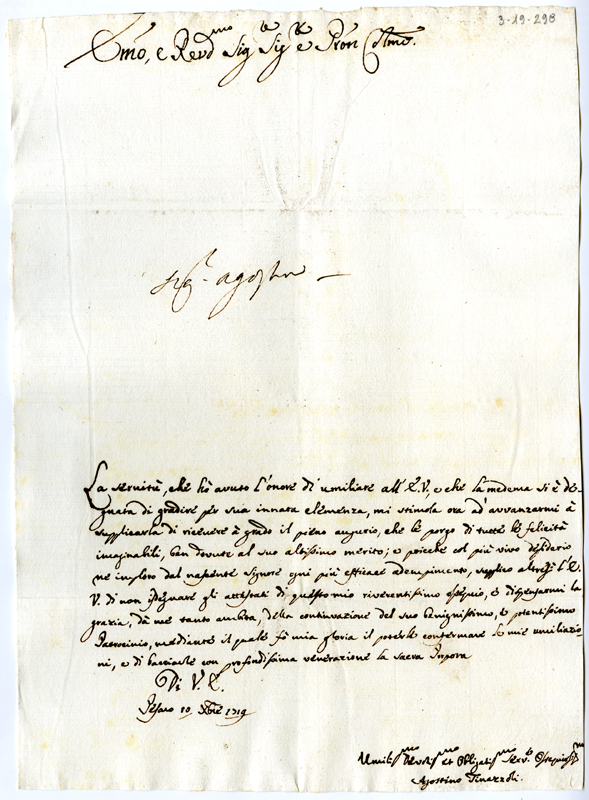 3-19-298
Emo, e Revd mo Sig Sig e Pron Colmo.
Sig.r agostno
La servitù, che hò avuto l'onore di umiliare all'E.V., e che la medema si è de-
gnata di gradire per sua innata clemenza, mi stimola ora ad avvanzarmi à
supplicarla di ricevere à grado il pieno augurio, che le porgo di tutte le felicità
imaginabili, ben dovute al suo altissimo merito; e poiche col più vivo desiderio
ne imploro dal nascente Signore ogni più efficace adempimento, supplico altresì l'E.
V. di non isdegnare gli attestati di questo mio riverentissimo ossequio, e dispensarmi la
grazia, dà me tanto ambita, della continuazione del suo benignissimo, e potentissimo
Patrocinio, mediante il quale fà mia gloria il poterle confermare le mie umiliazio-
ni, e di bacciarle con profondissima venerazione la sacra Porpora
Di V. E.
Pesaro 10 Xbre 1719
Umilis mo Devotis mo et Obligatis mo Serv.e Ossequiosis mo
Agostino Pinazzoli.